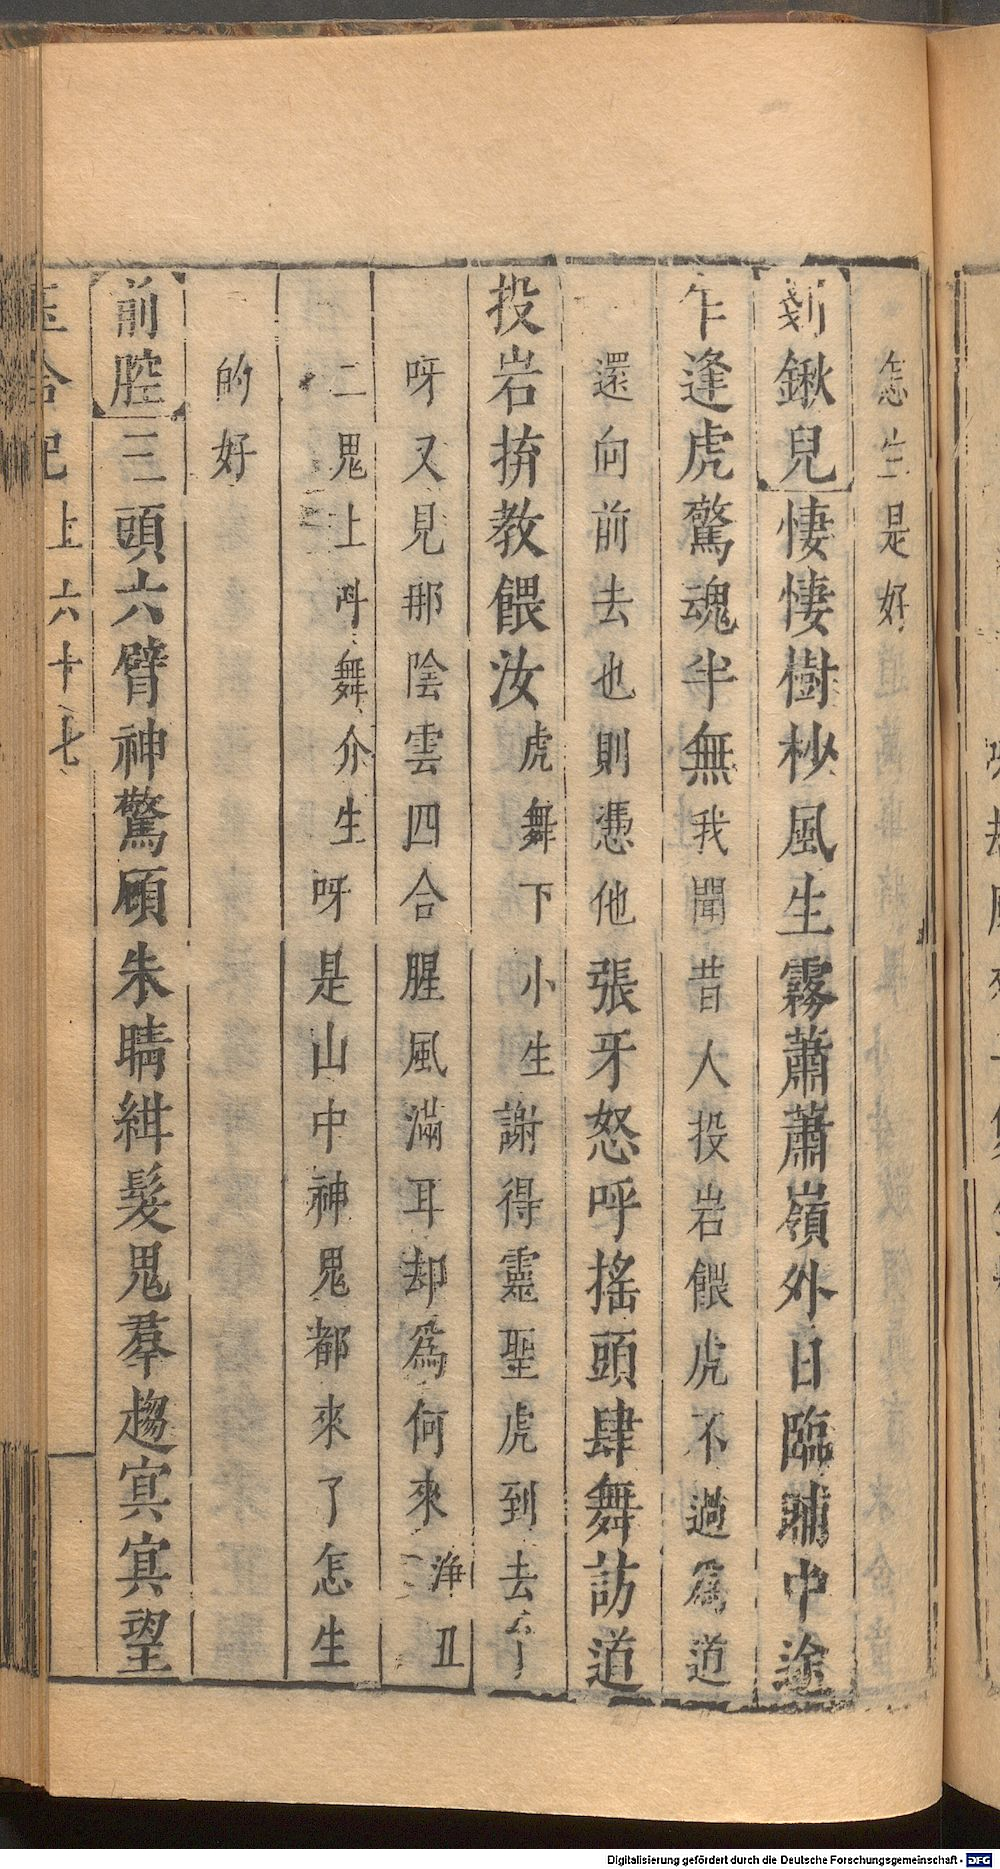 怎生是好
剗鍬兒悽悽樹杪風生霧蕭蕭嶺外日臨晡中途
乍逢虎驚魂半無我聞昔人投岩餵虎不過爲道
還向前去也則憑他張牙怒呼搖頭肆舞訪道
投岩拚教餵汝虎舞下小生謝得靈聖虎到去了
呀又見那陰雲四合腥風滿耳却爲何來淨丑
二鬼上舞介生呀是山中神鬼都來了怎生
的好
前腔三頭六臂神驚顧朱睛紺髮鬼羣趨冥冥望
玉合記 上 六十七
Digitalisierung gefördert durch die Deutsche Forschungsgemeinschaft - DFG